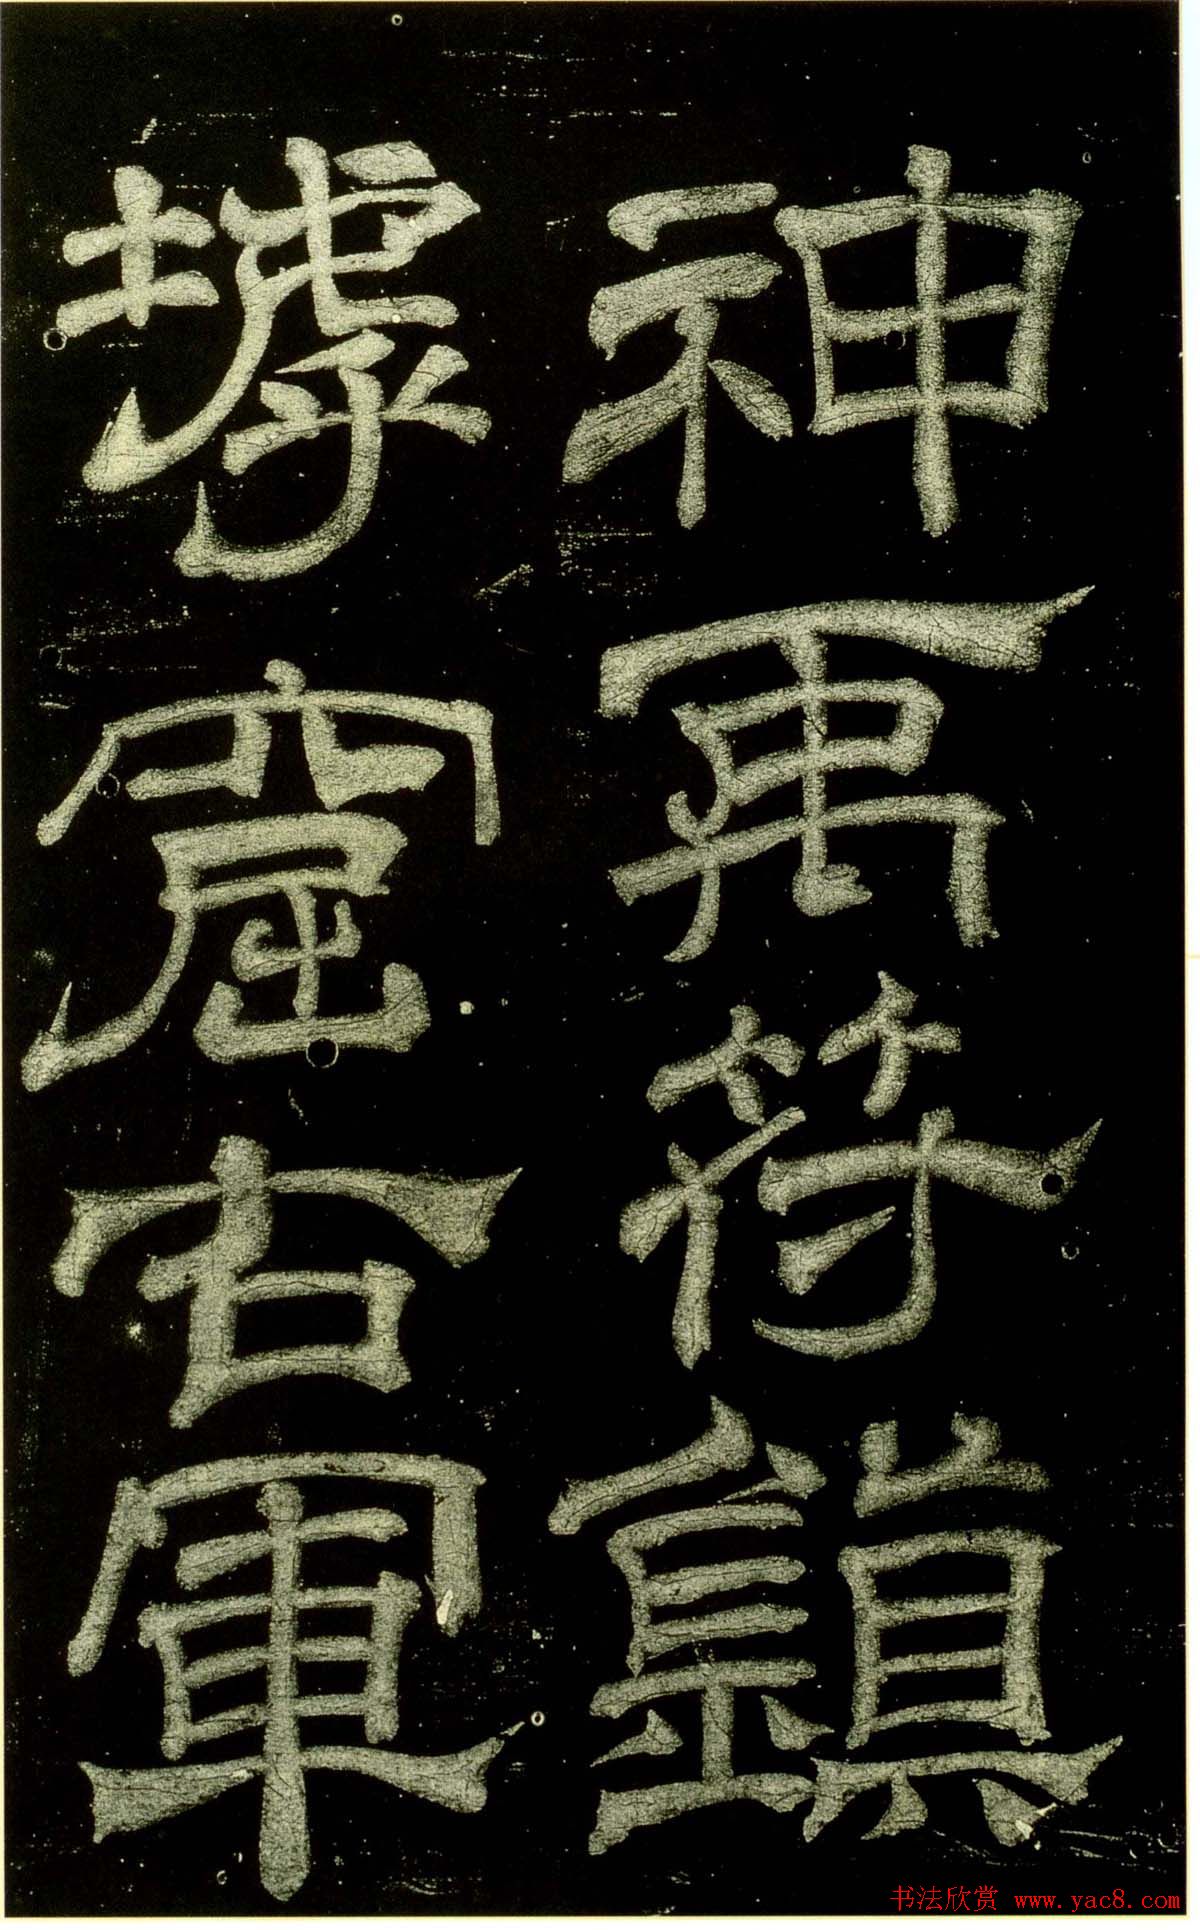 神禹符鎮
窟右軍
书法欣赏 www.yac8.com